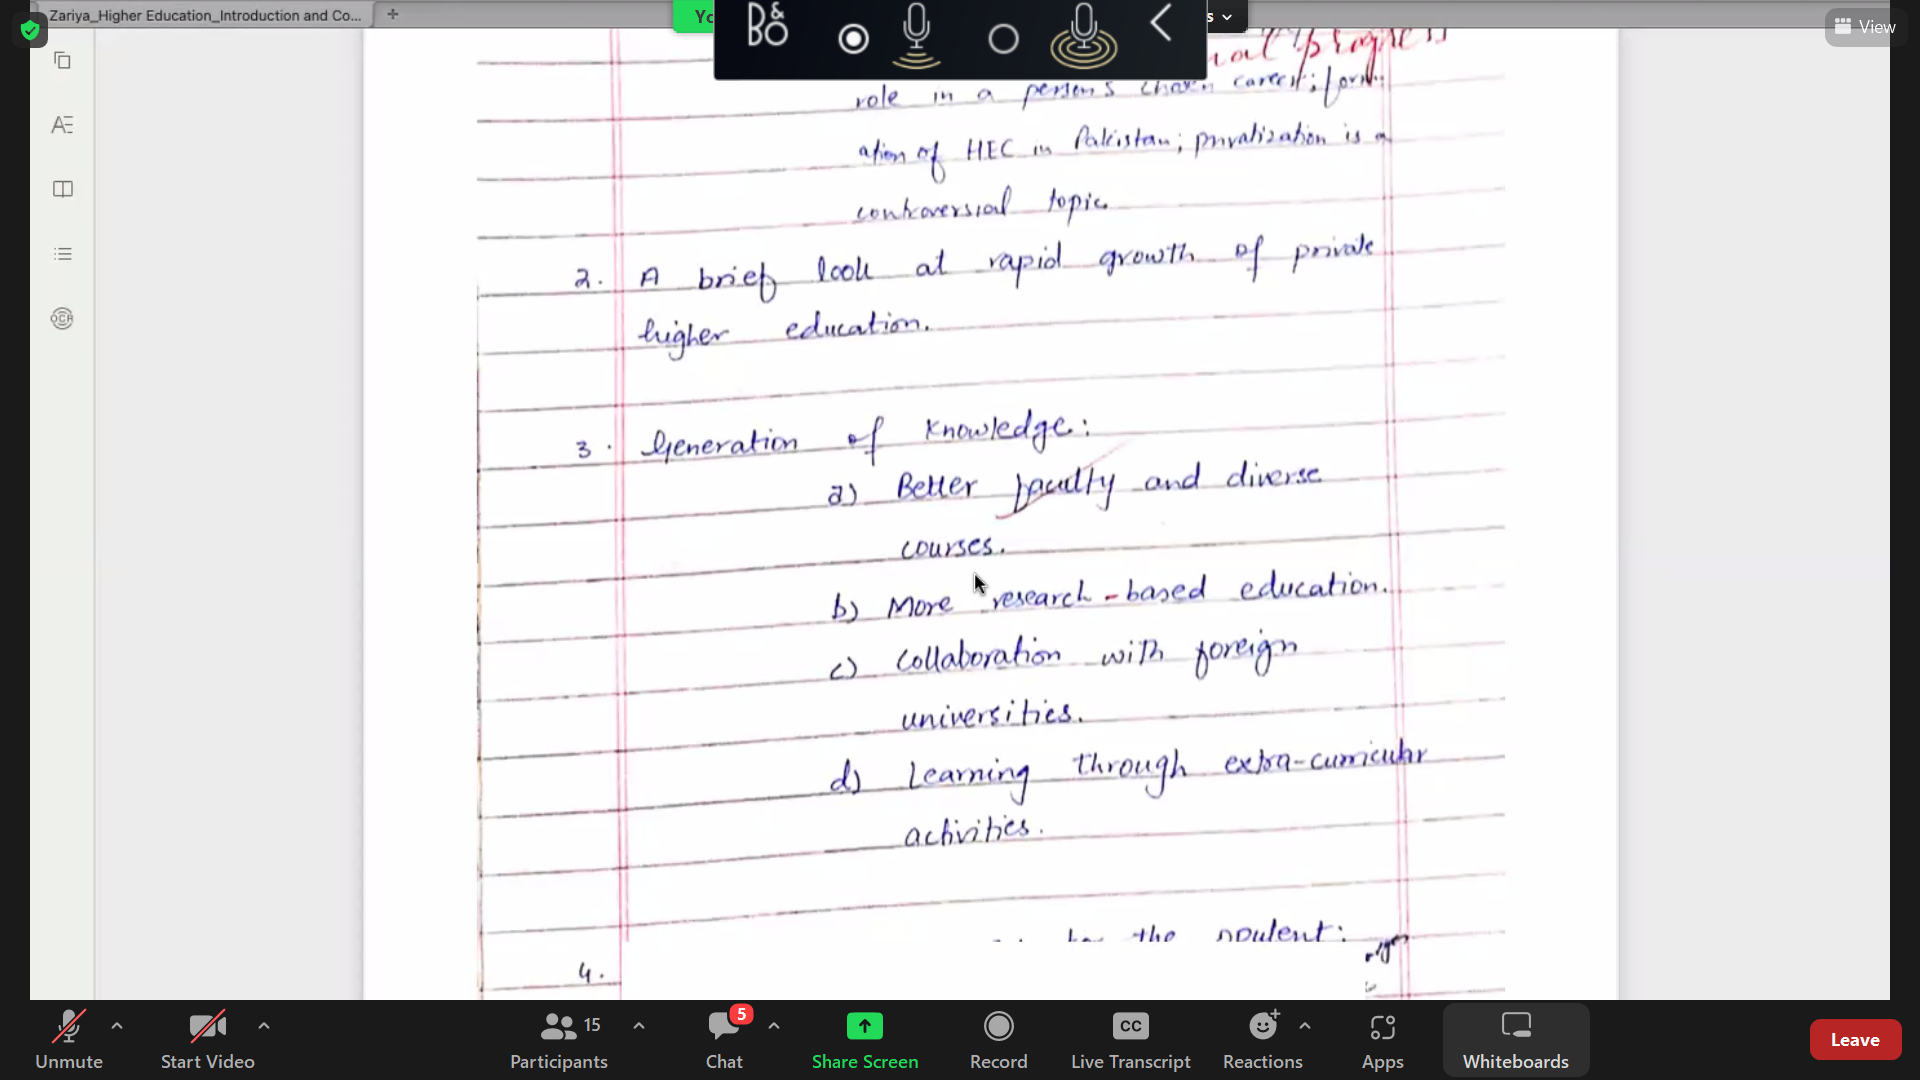 Zariya_Higher Education_Introduction and Co...
View
role in a person's chosen career; form
ation of HEC in Pakistan; privatization is a
controversial topic.
2. A brief look at rapid growth of private
higher education.
3. Generation of Knowledge:
a) Better faculty and diverse
courses.
b) More research-based education.
c) Collaboration with foreign
universities.
d) Learning through extra-curricular
activities.
the opulent:
4.
Unmute
Start Video
15
Participants
5
Chat
Share Screen
Record
CC
Live Transcript
Reactions
Apps
Whiteboards
Leave